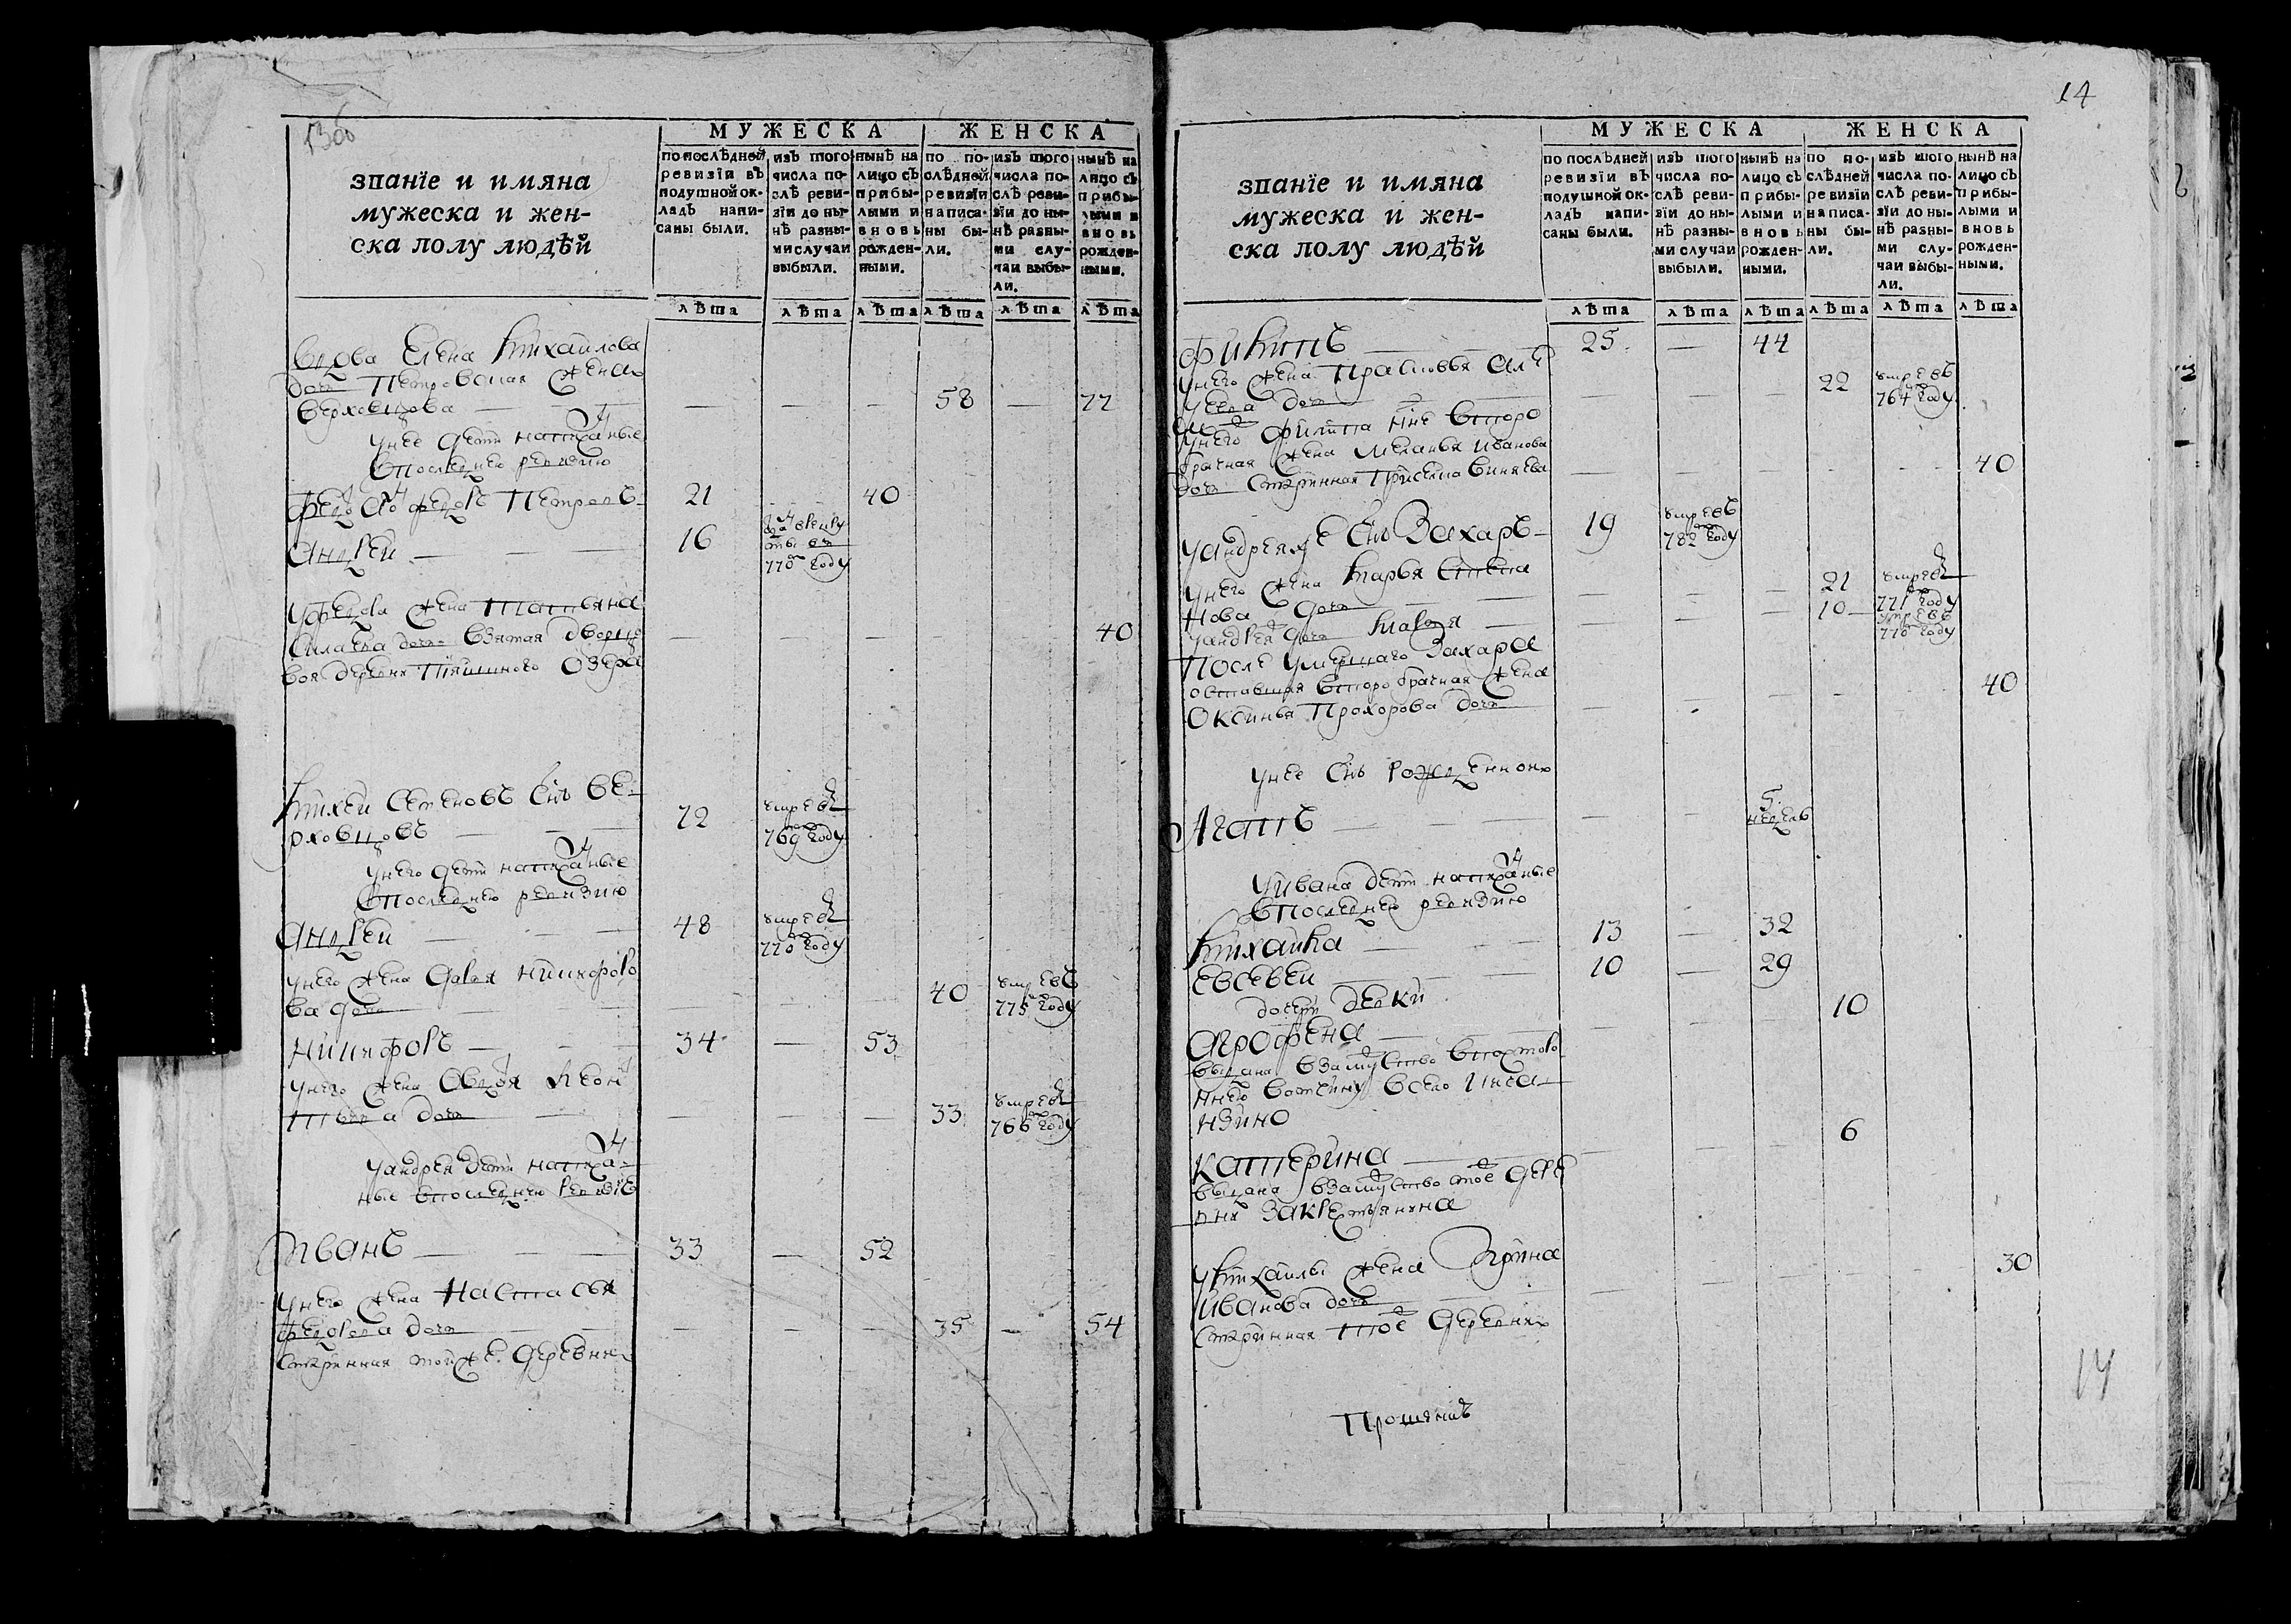 13об
МУЖЕСКА ЖЕНСКА
званїе и имяна
мужеска и жен-
ска полу людѣй
по послѣдней
ревизїи въ
подушной ок-
ладъ напи-
саны были.
изъ того
числа по-
слѣ реви-
зїи до ны-
нѣ разны-
ми случаи
выбыли.
нынѣ на
лицо съ
прибы-
лыми и
вновь
рожден-
ными.
по по-
слѣдней
ревизїи
написа-
ны бы-
ли.
изъ того
числа по-
слѣ реви-
зїи до ны-
нѣ разны-
ми слу-
чаи выбы-
ли.
нынѣ на
лицо съ
прибы-
лыми и
вновь
рожден-
ными.
лѣта лѣта лѣта лѣта лѣта лѣта
вдова Елена михайлова
дочь Петровская жена
верховцова — — — — 58 — 77
унее дети написаные
впоследнею ревизию
Федосо федоръ Петровъ 21 40
Андрей — 16 рекруты
770 году
уфедора жена татьяна
Силаева дочь взятая дворцо
вои деревни Пяшиного Озера — — — 40
михей Семеновъ снъ Ве-
рховцовъ — 72 умревъ
769 году
унего дети написаные
впоследнею ревизию
Андрей — 48 умре въ
770 году
унего жена Дарья Никифоро
ва дочь — — — 40 умре въ
775 году
Никифоръ — 34 — 53
унего жена Авдотя Леон
тьева дочь — — — 33 умре въ
766 году
уандрея дети написа-
ные впоследнею ревизiе
Иванъ — 33 — 52
унего жена Настасья
федорова дочь — — — 35 — 54
старинная тойже деревни
14
МУЖЕСКА ЖЕНСКА
званїе и имяна
мужеска и жен-
ска полу людѣй
по послѣдней
ревизїи въ
подушной ок-
ладъ напи-
саны были.
изъ того
числа по-
слѣ реви-
зїи до ны-
нѣ разны-
ми случаи
выбыли.
нынѣ на
лицо съ
прибы-
лыми и
вновь
рожден-
ными.
по по-
слѣдней
ревизїи
написа-
ны бы-
ли.
изъ того
числа по-
слѣ реви-
зїи до ны-
нѣ разны-
ми слу-
чаи выбы-
ли.
нынѣ на
лицо съ
прибы-
лыми и
вновь
рожден-
ными.
лѣта лѣта лѣта лѣта лѣта лѣта
Филипъ — 25 — 44
унего жена Прасковья Але
дочь — — — 22 умре въ
764 году
унего филипа нне второ
брачная жена Меланья Иванова
дочь старинная — — — — — 40
уандреяже снъ Захаръ 19 умре въ
782 году
унего жена марья Степа
нова дочь — — — 21 умре въ
771 году
уандрея дочь — — 10 умре въ
770 году
После умершаго Захара
оставшая второбрачная жена
Оксинья Прохорова дочь — — — — 40
унее снъ рожденнои
Агапъ — — — 5
недель
уивана дети написаные
впоследнею ревизию
михайла — 13 — 32
Евсевеи — 10 — 29
дочери девки
Агрофена — — — 10
выдана взамужство впосторо
ннею вотчину всело Инса-
нзино
Катерина — — — 6
выдана взамужство тое дере
вни закрестьянина
умихаилы жена Ирина
Иванова дочь — — — — 30
старинная тое деревни
14
Прошянинъ